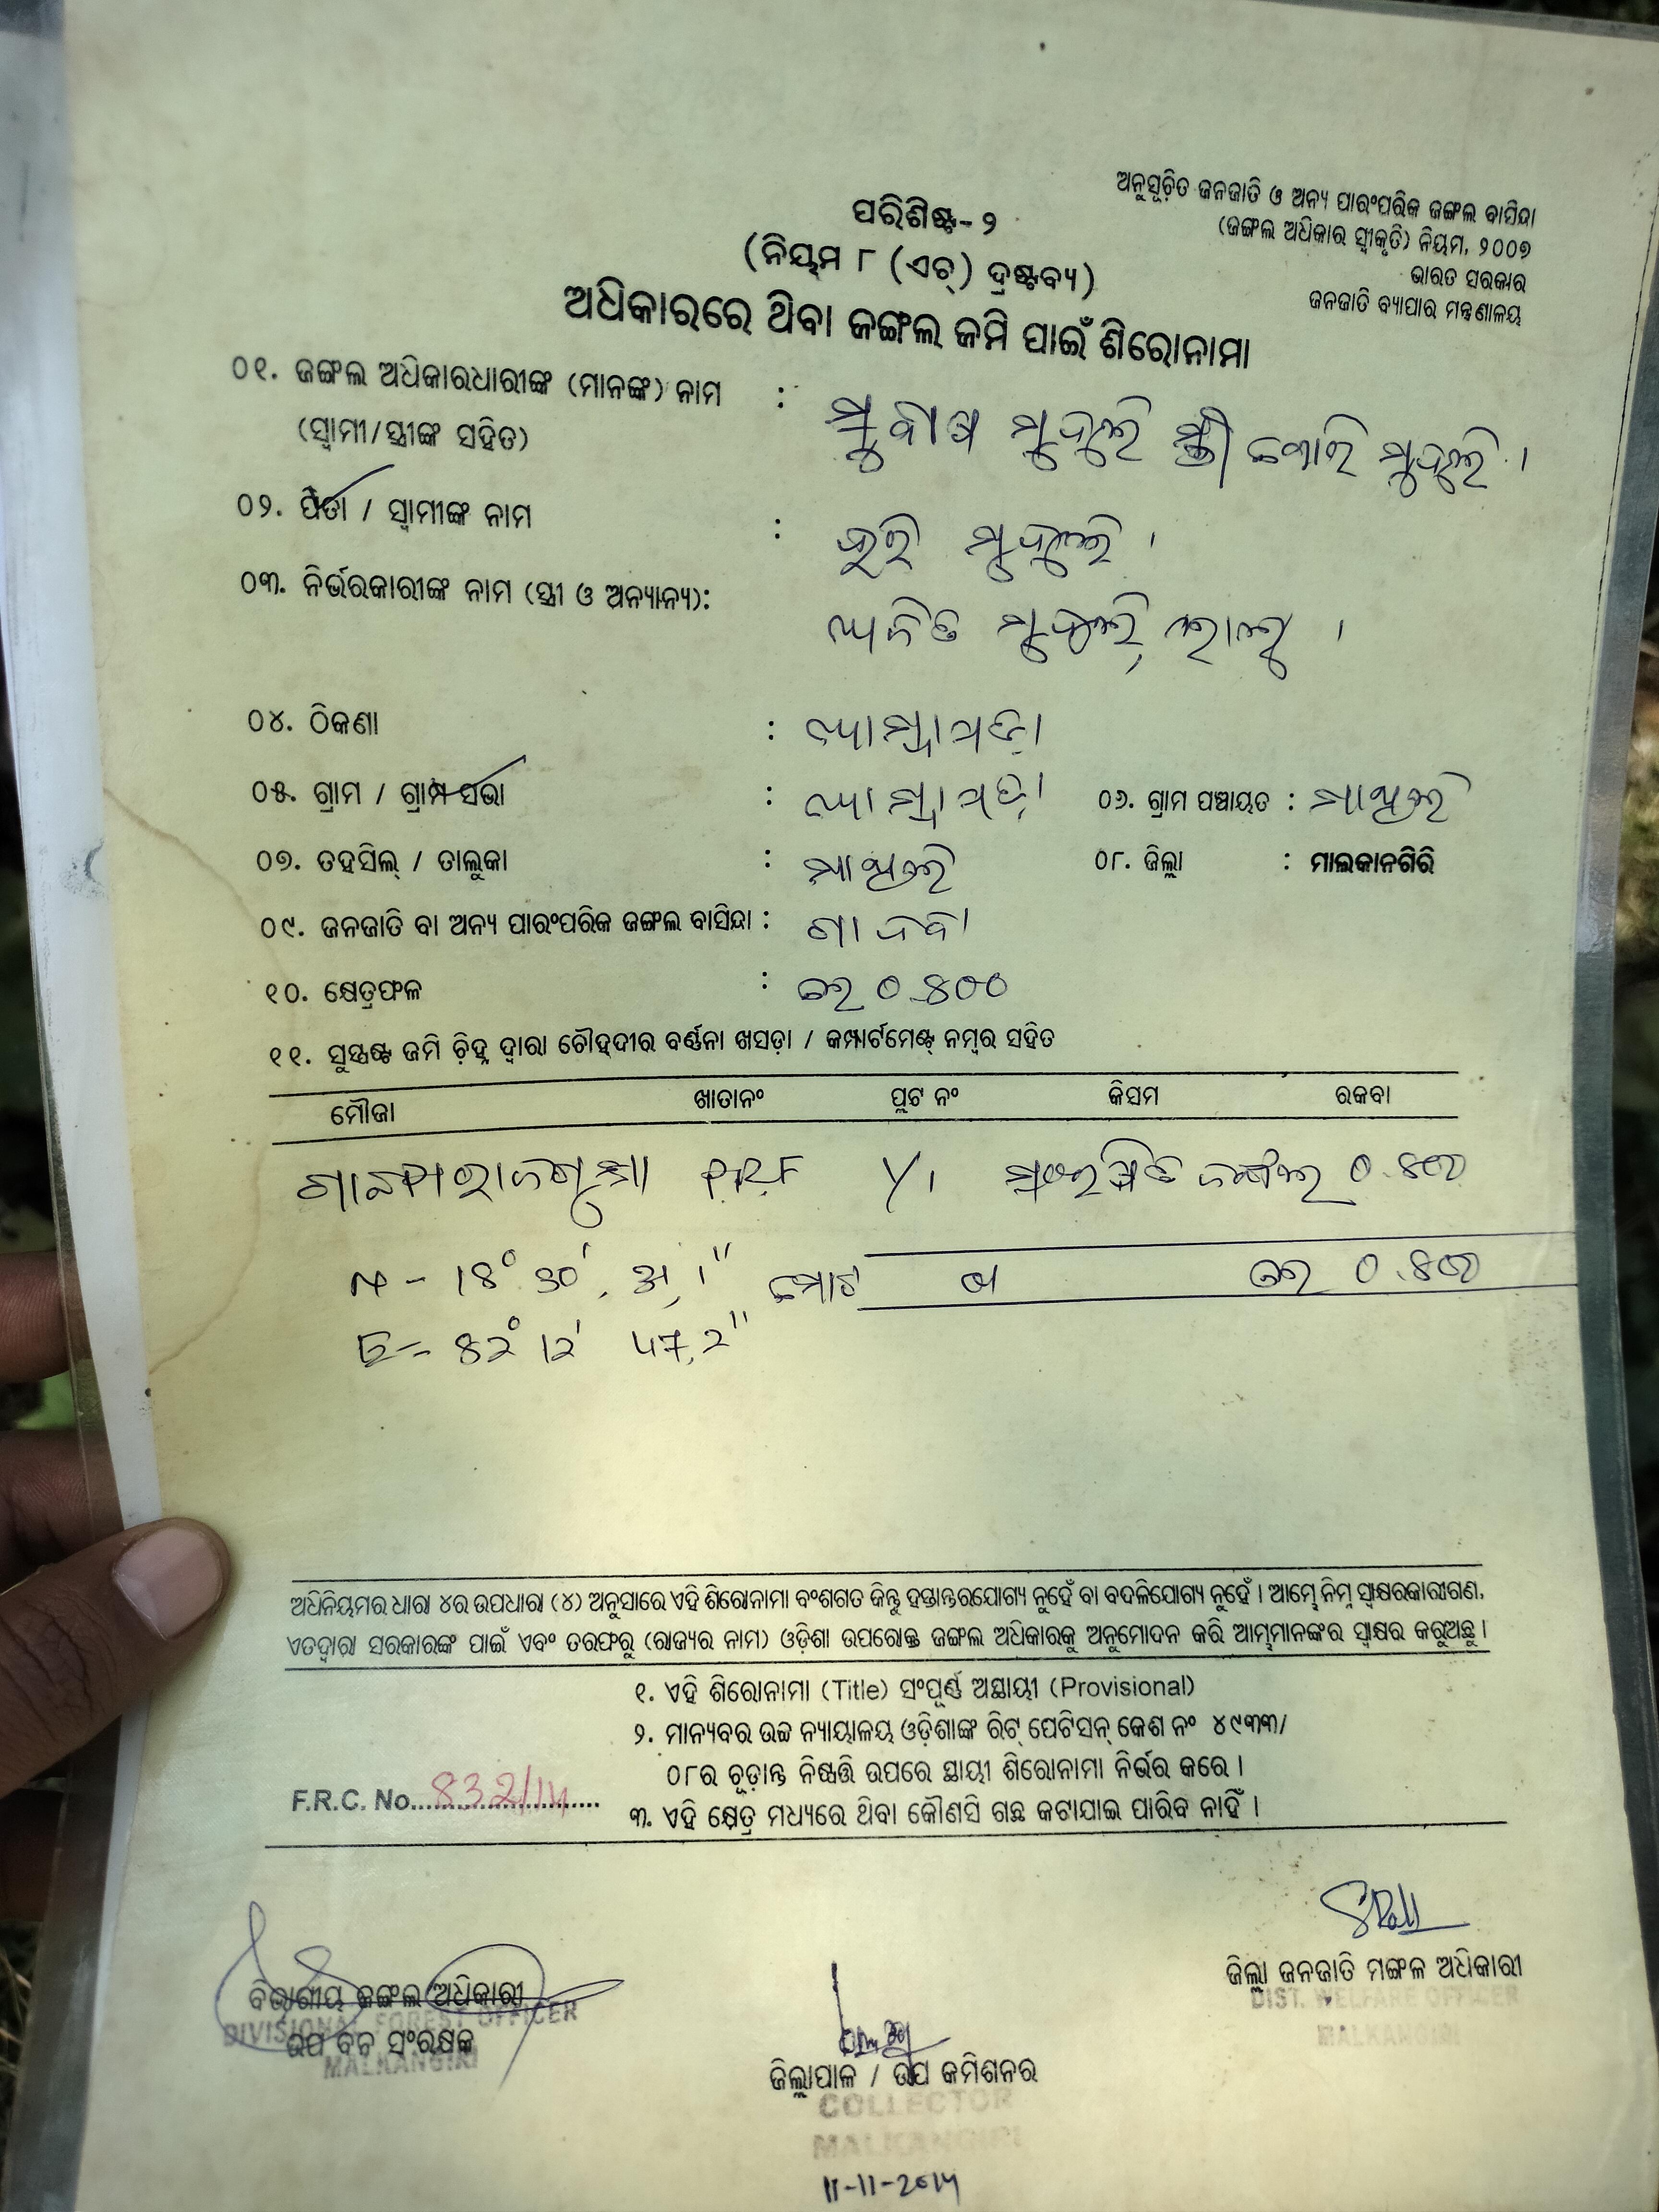 ଅନୁସୂଚିତ ଜନଜାତି ଓ ଅନ୍ୟ ପାରଂପରିକ ଜଙ୍ଗଲ ବାସିନ୍ଦା
(ଜଙ୍ଗଲ ଅଧିକାର ସ୍ୱୀକୃତି) ନିୟମ, ୨୦୦୭
ଭାରତ ସରକାର
ଜନଜାତି ବ୍ୟାପାର ମନ୍ତ୍ରଣାଳୟ
ପରିଶିଷ୍ଟ- ୨
(ନିୟମ ୮ (ଏଚ୍) ଦ୍ରଷ୍ଟବ୍ୟ)
ଅଧିକାରରେ ଥିବା ଜଙ୍ଗଲ ଜମି ପାଇଁ ଶିରୋନାମା
୦୧. ଜଙ୍ଗଲ ଅଧିକାରଧାରୀଙ୍କ (ମାନଙ୍କ) ନାମ : ମୁଦୁଲି ସ୍ତ୍ରୀ ମୁଦୁଲି ।
(ସ୍ୱାମୀ/ସ୍ତ୍ରୀଙ୍କ ସହିତ)
୦୨. ପିତା / ସ୍ୱାମୀଙ୍କ ନାମ : ମୁଦୁଲି ।
୦୩. ନିର୍ଭରକାରୀଙ୍କ ନାମ (ସ୍ତ୍ରୀ ଓ ଅନ୍ୟାନ୍ୟ): ମୁଦୁଲି,
୦୪. ଠିକଣା :
୦୫. ଗ୍ରାମ / ଗ୍ରାମ ସଭା : ୦୬. ଗ୍ରାମ ପଞ୍ଚାୟତ : ମାଥିଲି
୦୭. ତହସିଲ୍ / ତାଲୁକା : ମାଥିଲି ୦୮. ଜିଲ୍ଲା : ମାଲକାନଗିରି
୦୯. ଜନଜାତି ବା ଅନ୍ୟ ପାରଂପରିକ ଜଙ୍ଗଲ ବାସିନ୍ଦା : ଗାଦବା
୧୦. କ୍ଷେତ୍ରଫଳ : ହେ ୦.୪୦୦
୧୧. ସୁସ୍ପଷ୍ଟ ଜମି ଚିହ୍ନ ଦ୍ୱାରା ଚୌହଦୀର ବର୍ଣ୍ଣନା ଖସଡ଼ା / କମ୍ପାର୍ଟମେଣ୍ଟ୍ ନମ୍ବର ସହିତ
ମୌଜା ଖାତାନଂ ପ୍ଲଟ ନଂ କିସମ ରକବା
PRF
N - 18° 30' ମୋଟ
E - 82° 12' 47.2"
ଅଧିନିୟମର ଧାରା ୪ର ଉପଧାରା (୪) ଅନୁସାରେ ଏହି ଶିରୋନାମା ବଂଶଗତ କିନ୍ତୁ ହସ୍ତାନ୍ତରଯୋଗ୍ୟ ନୁହେଁ ବା ବଦଳିଯୋଗ୍ୟ ନୁହେଁ । ଆମ୍ଭେ ନିମ୍ନ ସ୍ୱାକ୍ଷରକାରୀଗଣ,
ଏତଦ୍ୱାରା ସରକାରଙ୍କ ପାଇଁ ଏବଂ ତରଫରୁ (ରାଜ୍ୟର ନାମ) ଓଡ଼ିଶା ଉପରୋକ୍ତ ଜଙ୍ଗଲ ଅଧିକାରକୁ ଅନୁମୋଦନ କରି ଆମ୍ଭମାନଙ୍କର ସ୍ୱାକ୍ଷର କରୁଅଛୁ ।
୧. ଏହି ଶିରୋନାମା (Title) ସଂପୂର୍ଣ୍ଣ ଅସ୍ଥାୟୀ (Provisional)
୨. ମାନ୍ୟବର ଉଚ୍ଚ ନ୍ୟାୟାଳୟ ଓଡ଼ିଶାଙ୍କ ରିଟ୍ ପେଟିସନ୍ କେଶ ନଂ ୪୯୩୩/
୦୮ର ଚୂଡ଼ାନ୍ତ ନିଷ୍ପତ୍ତି ଉପରେ ସ୍ଥାୟୀ ଶିରୋନାମା ନିର୍ଭର କରେ ।
F.R.C. No. 832/14
୩. ଏହି କ୍ଷେତ୍ର ମଧ୍ୟରେ ଥିବା କୌଣସି ଗଛ କଟାଯାଇ ପାରିବ ନାହିଁ ।
ବିଭାଗୀୟ ଜଙ୍ଗଲ ଅଧିକାରୀ
DIVISIONAL FOREST OFFICER
ଉପ ବନ ସଂରକ୍ଷକ
MALKANGIRI
ଜିଲ୍ଲାପାଳ / ଉପ କମିଶନର
COLLECTOR
MALKANGIRI
11-11-2014
ଜିଲ୍ଲା ଜନଜାତି ମଙ୍ଗଳ ଅଧିକାରୀ
DIST. WELFARE OFFICER
MALKANGIRI